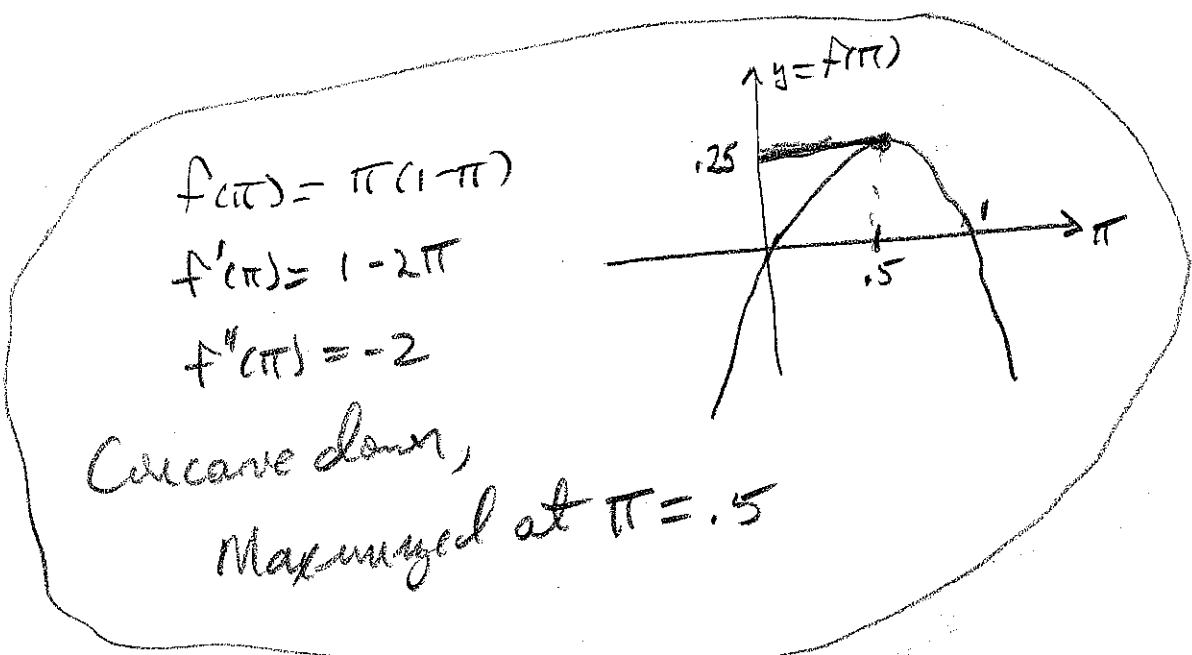 f(π) = π(1-π)
f'(π) = 1-2π
f"(π) = -2
Concave down,
Maximized at π = .5
y = f(π)
.25
.5
1
π